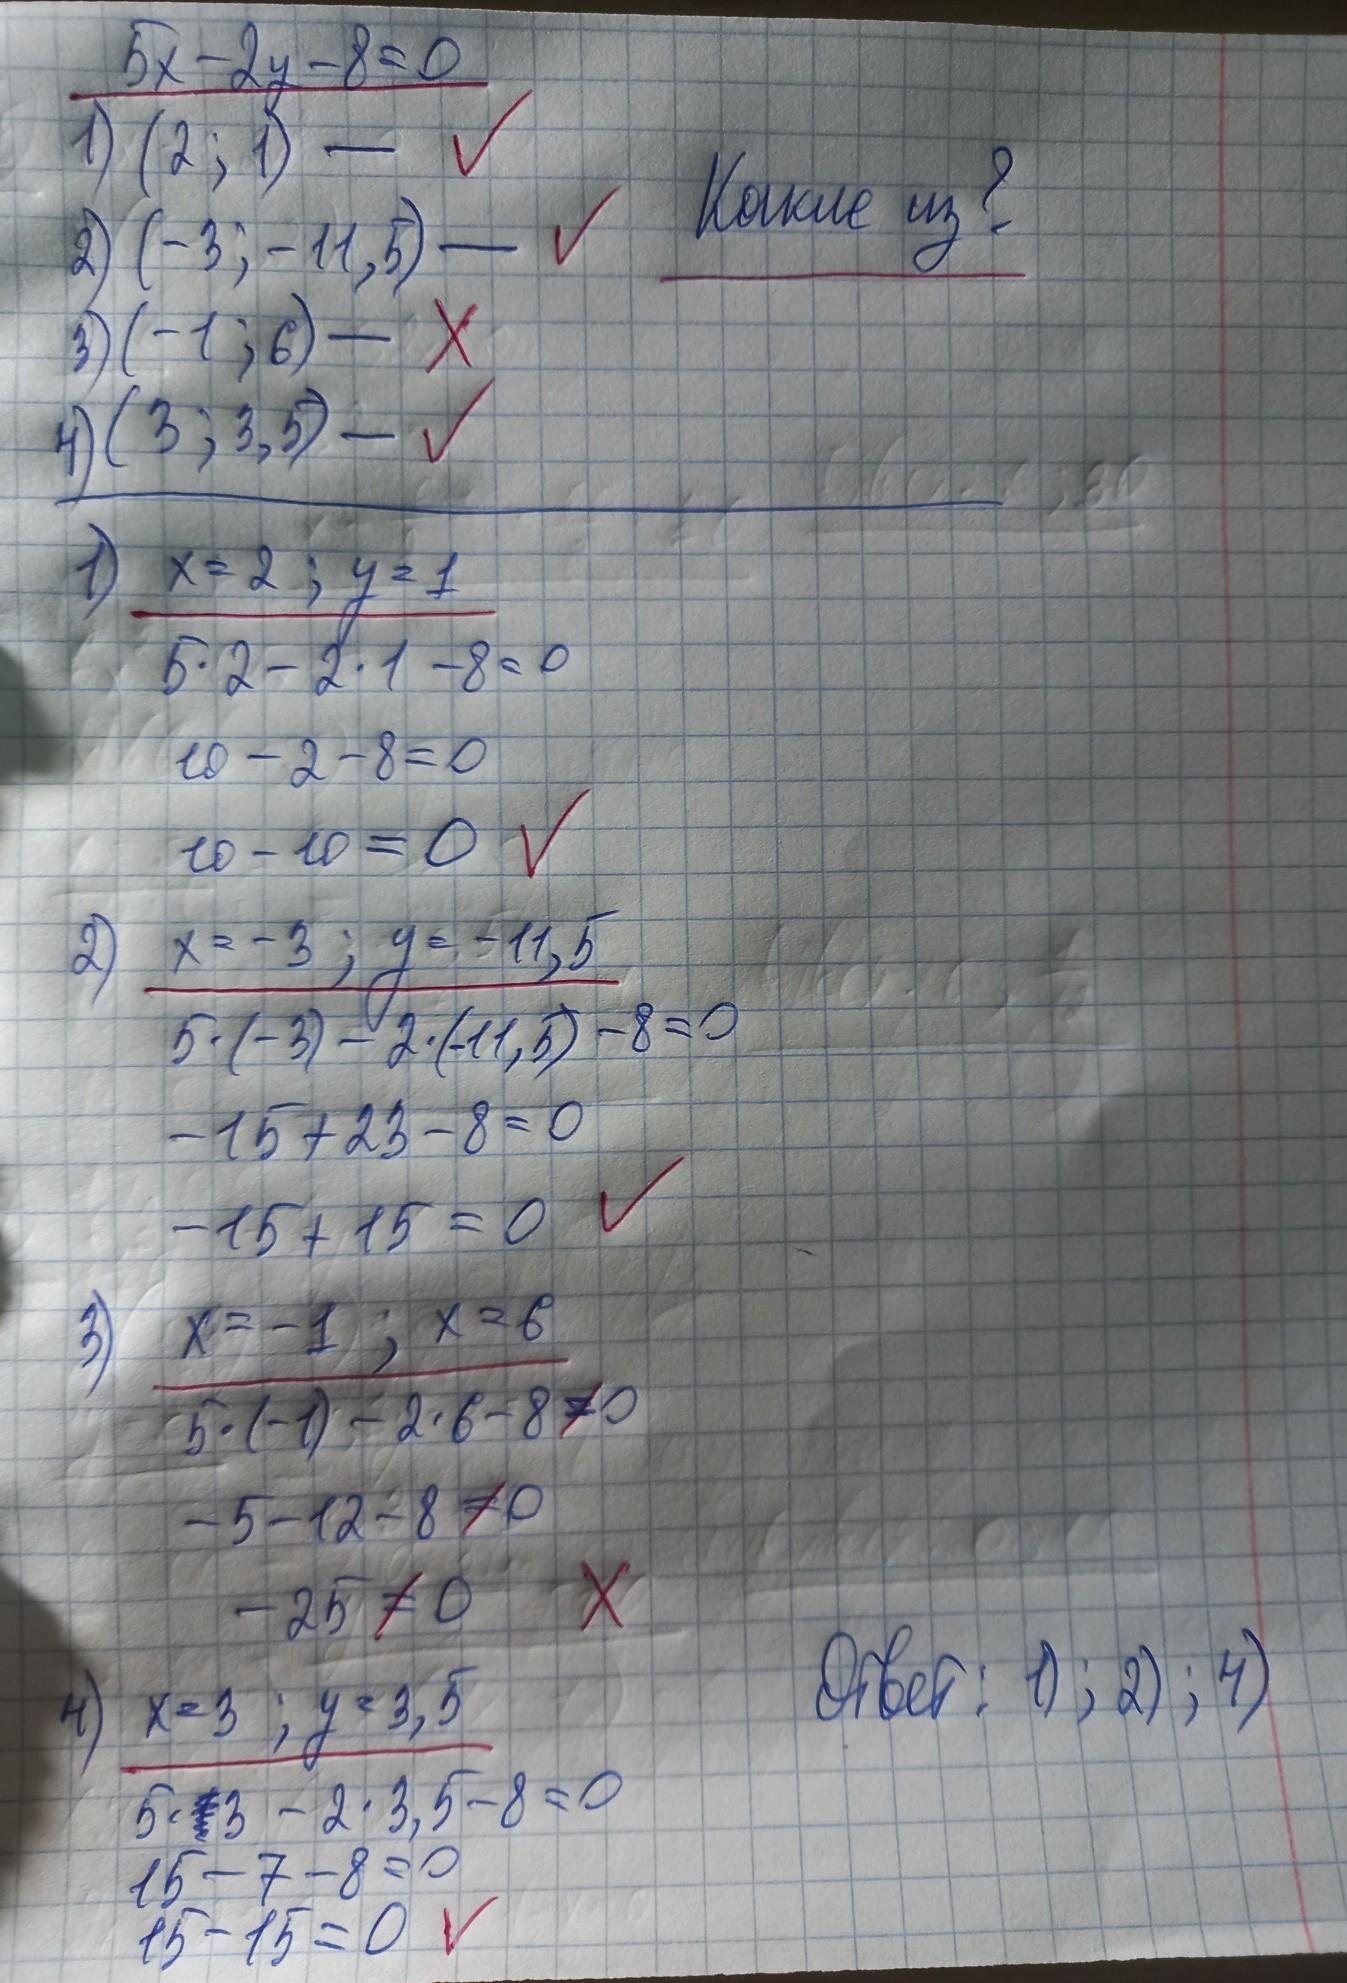 5x-2y-8=0
1) (2; 1) — ✓
2) (-3; -11,5) — ✓
Какие из?
3) (-1; 6) — X
4) (3; 3,5) — ✓
1) x=2; y=1
5·2-2·1-8=0
10-2-8=0
10-10=0 ✓
2) x=-3; y=-11,5
5·(-3)-2·(-11,5)-8=0
-15+23-8=0
-15+15=0 ✓
3) x=-1; x=6
5·(-1)-2·6-8≠0
-5-12-8≠0
-25≠0 X
4) x=3; y=3,5
5·3-2·3,5-8=0
15-7-8=0
15-15=0 ✓
Ответ: 1); 2); 4)